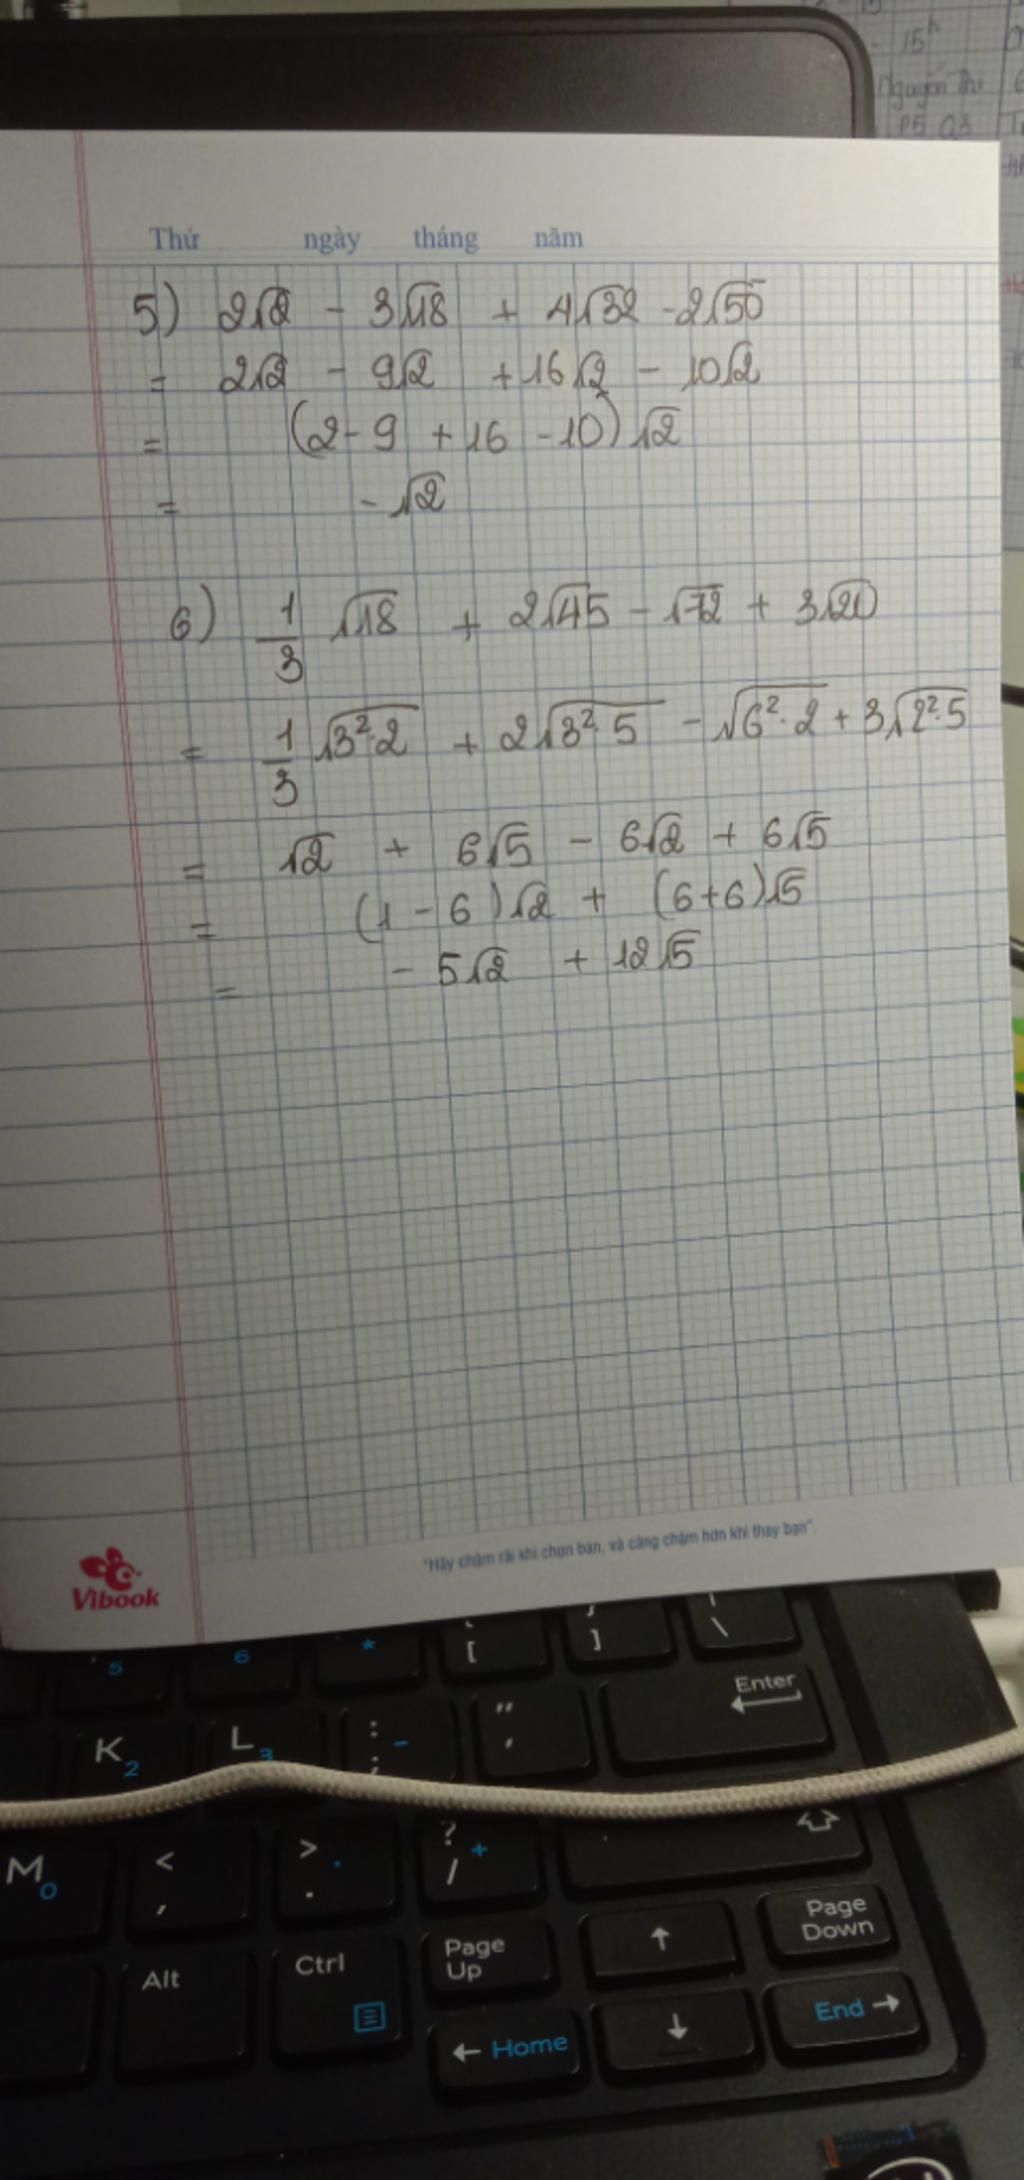 15h
Nguyễn Thi
P5 Q3
Thứ ngày tháng năm
5) 2√2 - 3√18 + 4√32 - 2√50
= 2√2 - 9√2 + 16√2 - 10√2
= (2 - 9 + 16 - 10) √2
= - √2
6) 1/3 √18 + 2√45 - √72 + 3√20
= 1/3 √3²·2 + 2√3²·5 - √6²·2 + 3√2²·5
= √2 + 6√5 - 6√2 + 6√5
= (1 - 6)√2 + (6+6)√5
= - 5√2 + 12√5
"Hãy chậm rãi khi chọn bạn, và càng chậm hơn khi thay bạn".
Vibook
5 6 * [ ] \
K 2 L 3 : ; - " ' Enter
M 0 < , > . . ? / +
Alt Ctrl Page Up ↑ Page Down
← Home ↓ End →